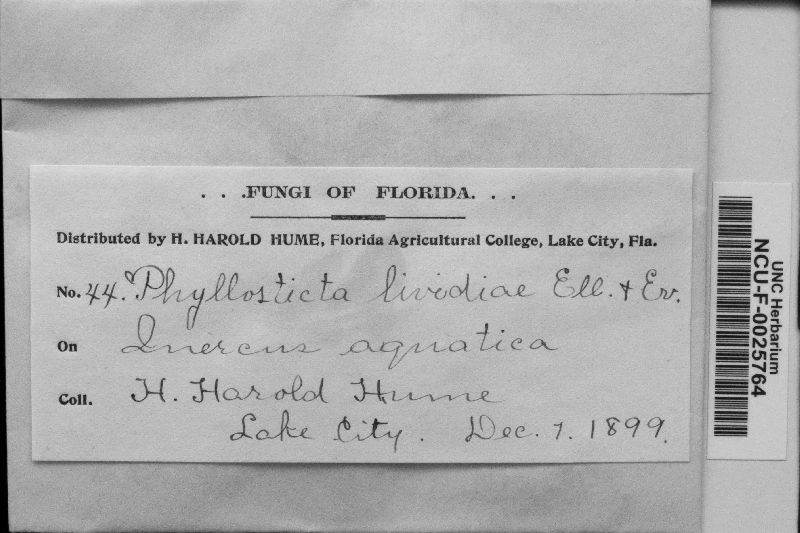 . . .FUNGI OF FLORIDA. . .
Distributed by H. HAROLD HUME, Florida Agricultural College, Lake City, Fla.
No. 44. Phyllosticta lividiae Ell. & Ev.
On Quercus aquatica
Coll. H. Harold Hume
Lake City. Dec. 7. 1899.
UNC Herbarium
NCU-F-0025764